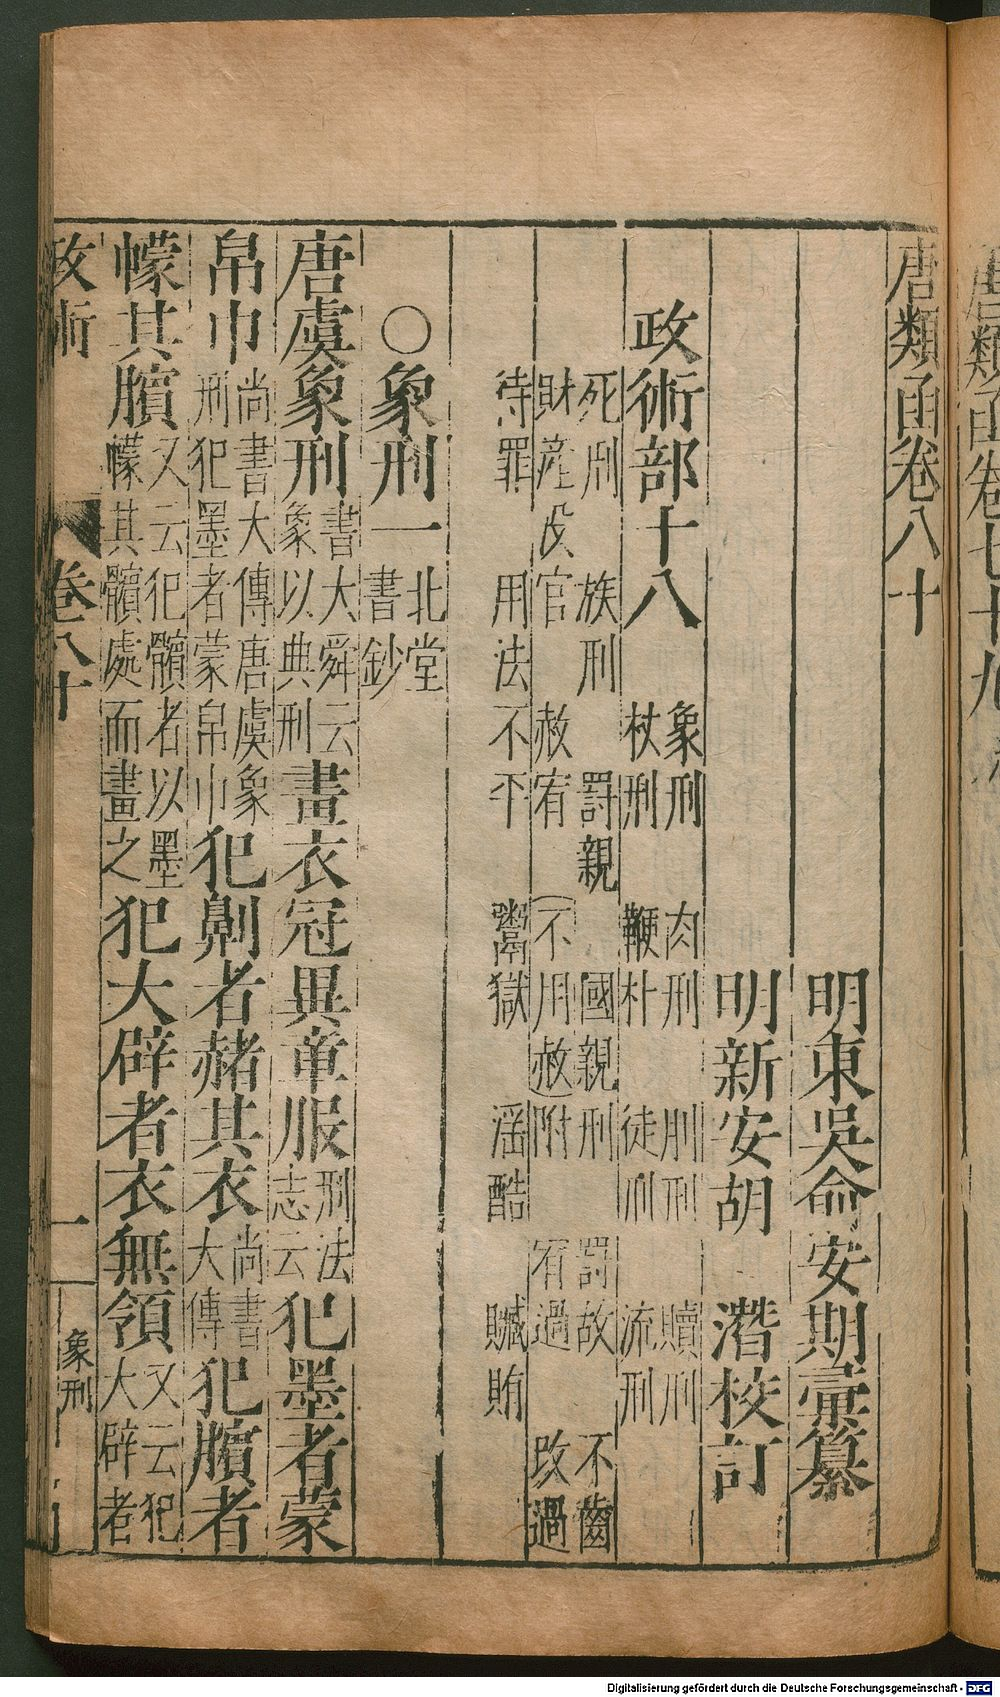 唐類函卷八十
明東吳俞安期彙纂
明新安胡　潛校訂
政術部十八
象刑　肉刑　刖刑　贖刑
杖刑　鞭朴　徒刑　流刑
死刑　族刑　罸親　國親刑　罸故　不齒
財產没官　赦宥　(不用赦)附　宥過　改過
待罪　用法不平　鬻獄　滛酷　贓賄
○象刑一 北堂書鈔
唐虞象刑 書大舜云象以典刑 畫衣冠異章服 刑法志云 犯墨者蒙
帛巾 尚書大傳唐虞象刑犯墨者蒙帛巾 犯劓者赭其衣 尚書大傳 犯臏者
幪其臏 又云犯髕者以墨幪其髕處而畫之 犯大辟者衣無領 又云犯大辟者
政術
卷八十
一
象刑
唐類函卷七十九
Digitalisierung gefördert durch die Deutsche Forschungsgemeinschaft - DFG